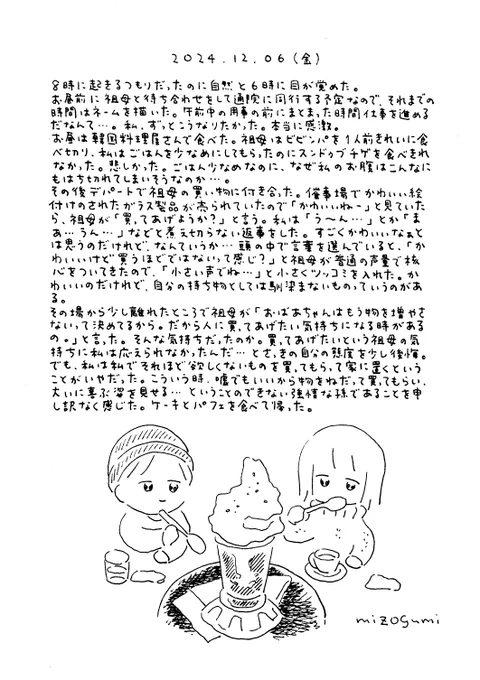 2024.12.06(金)
8時に起きるつもりだったのに自然と6時に目が覚めた。
お昼前に祖母と待ち合わせをして通院に同行する予定なので、それまでの
時間はネームを描いた。午前中の用事の前にまとまった時間仕事を進める
だなんて…。私、ずっとこうなりたかった。本当に感激。
お昼は韓国料理屋さんで食べた。祖母はビビンバを1人前きれいに食
べ切り、私はごはんを少なめにしてもらったのにスンドゥブチゲを食べきれ
なかった。悲しかった。ごはん少なめなのに、なぜ私のお腹はこんなに
もはち切れてしまいそうなのか…。
その後デパートで祖母の買い物に付き合った。催事場でかわいい絵
付けのされたガラス製品が売られていたので「かわいいねー」と見ていた
ら、祖母が「買ってあげようか?」と言う。私は「う〜ん…」とか「ま
あ…うん…」などと煮え切らない返事をした。すごくかわいいなぁと
は思うのだけれど、なんていうか…頭の中で言葉を選んでいると、「か
わいいけど買うほどではないって感じ?」と祖母が普通の声量で核
心をついてきたので、「小さい声でね…」と小さくツッコミを入れた。か
わいいのだけれど、自分の持ち物としては馴染まないものっていうのがあ
る。
その場から少し離れたところで祖母が「おばあちゃんはもう物を増やさ
ないって決めてるから。だから人に買ってあげたい気持ちになる時がある
の。」と言った。そんな気持ちだったのか。買ってあげたいという祖母の気
持ちに私は応えられなかったんだ…とさっきの自分の態度を少し後悔。
でも、私は私でそれほど欲しくないものを買ってもらって家に置くという
ことがいやだった。こういう時、嘘でもいいから物をねだって買ってもらい、
大いに喜ぶ姿を見せる…ということのできない強情な孫であることを申
し訳なく感じた。ケーキとパフェを食べて帰った。
mizogumi